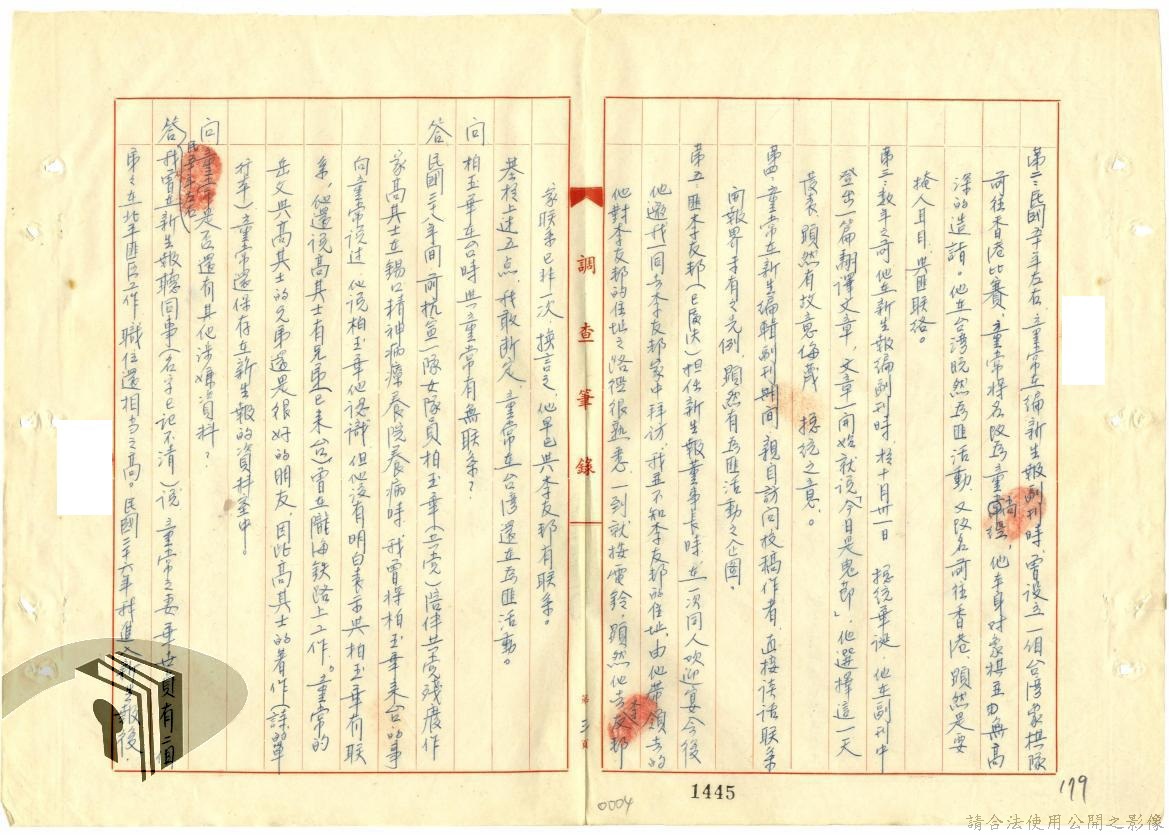 第二：民國五十年左右，童常在編新生報副刊時，曾設立一個台灣象棋隊
前往香港比賽，童常將名改為童，他本身对象棋並無高
深的造詣。他在台灣既然為匪活動，又改名前往香港，顕然是要
掩人耳目，與匪联络。
第三：数年之前他在新生報編副刊時，於十月卅一日　總統華誕，他在副刊中
登出一篇翻譯文章，文章一開始就说「今日是鬼節」，他選擇這一天
發表，顕然有故意侮蔑　總統之意。
第四：童常在新生編輯副刊時间，親自訪问投稿作者，直接談話联系
開報界未有之先例，顕然有為匪活動之企圖。
第五：匪李友邦（已處决）担任新生報董事長時，在一次同人欢迎宴会後
他邀我一同去李友邦家中拜访，我並不知李友邦的住址，由他带领去的
他對李友邦的住址之路徑很熟悉，一到就按電鈴，顕然他去李友邦
家联系已非一次，換言之，他早已與李友邦有联系。
基於上述五点，我敢断定，童常在台灣還在為匪活動。
问 柏玉華在台時與童常有無联系？
答 民國三十八年间，前抗宣一隊女隊員柏玉華（共党）陪伴共党殘废作
家高其士在錫口精神病療養院養病時，我曾將柏玉華来台的事
向童常说过，他说柏玉華他認識，但他没有明白表示與柏玉華有联
系，他還说高其士有兄弟（已来台）曾在隴海鉄路上工作。童常的
岳父與高其士的兄弟還是很好的朋友，因此高其士的著作（詩的單
行本）童常還保存在新生報的資料室中。
问 童常是否還有其他涉嫌資料？
答 我曾在新生報聽同事（名字已记不清）说，童常之妻　有一個
民五十年左右
弟弟在北平匪區工作，職位還相当之高。民國三十六年我進入新生報後，
調查筆錄
第三頁
1445
0004
179
請合法使用公開之影像